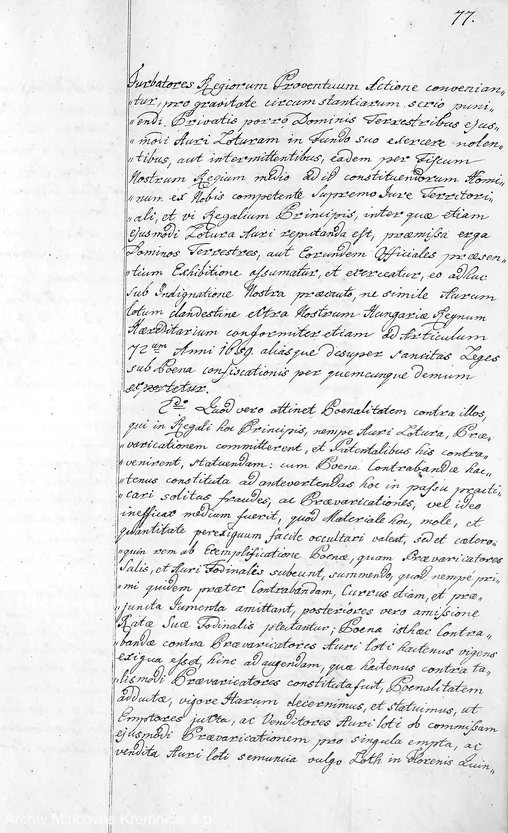 77.
Turbatores Regiorum Proventuum Actione convenian-
"tur, pro gravitate circumstantiarum serio puni-
"endi, Privatis porrò Dominis Terrestribus ejus-
"modi Auri Loturam in Fundo suo exercere nolen-
"tibus, aut intermittentibus, eadem per Fiscum
Nostrum Regium medio ad id constituendorum Homi-
"num ex Nobis competente Supremo Jure Territori-
"ali, et vi Regalium Principis, inter quæ etiam
ejusmodi Lotura Auri reputanda est, præmissa erga
Dominos Terrestres, aut Eorundem Officiales præsen-
"tium Exhibitione assumatur, et exerceatur, eo adhuc
sub Indignatione Nostra præcauto, ne simile Aurum
lotum clandestine extra Nostrum Hungariæ Regnum
Hæreditarium conformiter etiam ad Articulum
72um Anni 1659. aliasque desuper sancitas Leges
sub Poena confiscationis per quemcunque demum
exportetur.
Quod vero attinet Poenalitatem contra illos,
qui in Regali hoc Principis, nempe Auri Lotura, Præ-
"varicationem committerent, et Patentalibus his contra-
"venirent, statuendam: cum Poena Contrabandæ hac-
"tenus constituta ad antevertendas hoc in passu practi-
"cari solitas fraudes, ac Prævaricationes, vel ideo
inefficax medium fuerit, quod Materiale hoc, mole, et
quantitate perexiguum facile occultari valeat, sed et cætero-
"quin rem ab Exemplificatione Poenæ, quam Prævaricatores
Salis, et Auri Fodinalis subeunt, summendo, quod nempe pri-
"mi quidem præter Contrabandam, Currus etiam, et præ-
"juncta Jumenta amittant, posteriores vero amissione
Ratæ Suæ Fodinalis plectantur; Poena isthæc Contra-
"bandæ contra Prævaricatores Auri loti hactenus vigens
exigua esset, hinc ad augendam, quæ hactenus contra ta-
"lismodi Prævaricatores constituta fuit, Poenalitatem
adductæ, vigore Harum decernimus, et statuimus, ut
Emptores juxta, ac Venditores Auri loti ob commissam
ejusmodi Prævaricationem pro singula empta, ac
vendita Auri loti semuncia vulgo Loth in Florenis Quin-
Archív Mincovne Kremnica, š.p.